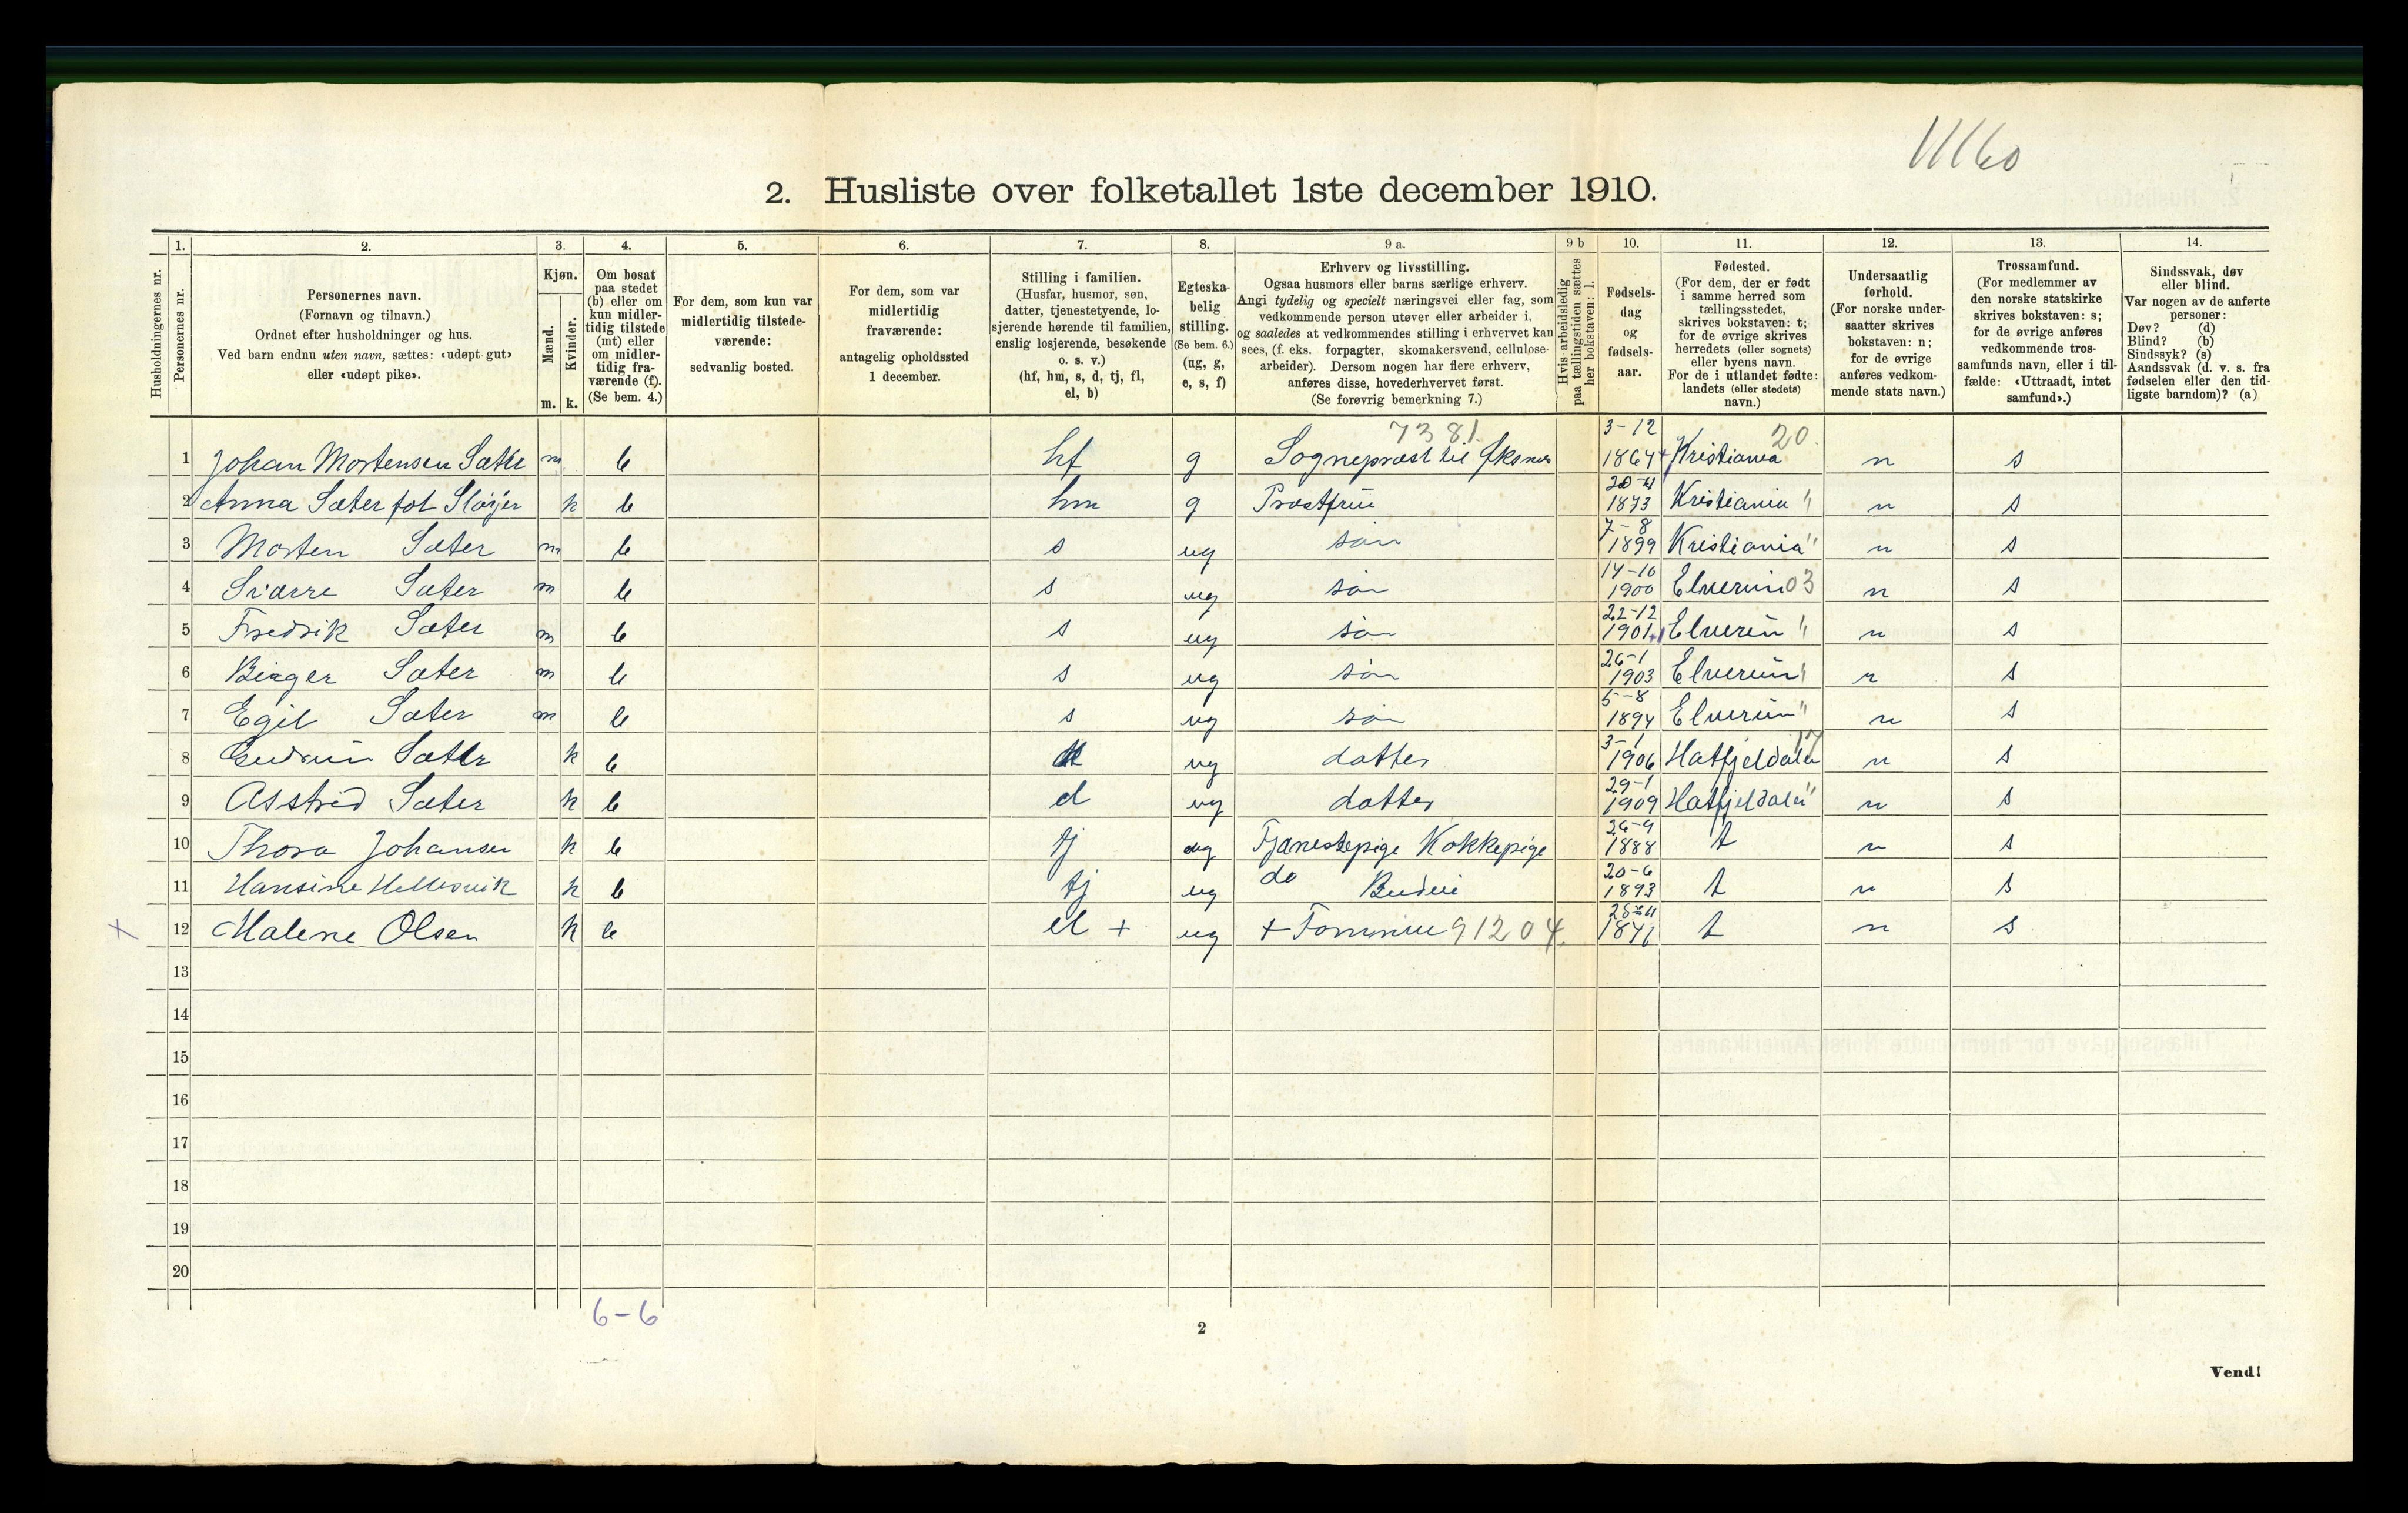 11160
2. Husliste over folketallet 1ste december 1910.
Husholdningernes nr.
1. Personernes nr.
2. Personernes navn.
(Fornavn og tilnavn.)
Ordnet efter husholdninger og hus.
Ved barn endnu uten navn, sættes: «udøpt gut»
eller «udøpt pike».
3. Kjøn.
Mænd. m.
Kvinder. k.
4. Om bosat
paa stedet
(b) eller om
kun midler-
tidig tilstede
(mt) eller
om midler-
tidig fra-
værende (f).
(Se bem. 4.)
5. For dem, som kun var
midlertidig tilstede-
værende:
sedvanlig bosted.
6. For dem, som var
midlertidig
fraværende:
antagelig opholdssted
1 december.
7. Stilling i familien.
(Husfar, husmor, søn,
datter, tjenestetyende, lo-
sjerende hørende til familien,
enslig losjerende, besøkende
o. s. v.)
(hf, hm, s, d, tj, fl,
el, b)
8. Egteska-
belig
stilling.
(Se bem. 6.)
(ug, g,
e, s, f)
9 a. Erhverv og livsstilling.
Ogsaa husmors eller barns særlige erhverv.
Angi tydelig og specielt næringsvei eller fag, som
vedkommende person utøver eller arbeider i,
og saaledes at vedkommendes stilling i erhvervet kan
sees, (f. eks. forpagter, skomakersvend, cellulose-
arbeider). Dersom nogen har flere erhverv,
anføres disse, hovederhvervet først.
(Se forøvrig bemerkning 7.)
9 b Hvis arbeidsledig
paa tællingstiden sættes
her bokstaven: l.
10. Fødsels-
dag
og
fødsels-
aar.
11. Fødested.
(For dem, der er født
i samme herred som
tællingsstedet,
skrives bokstaven: t;
for de øvrige skrives
herredets (eller sognets)
eller byens navn.
For de i utlandet fødte:
landets (eller stedets)
navn.)
12. Undersaatlig
forhold.
(For norske under-
saatter skrives
bokstaven: n;
for de øvrige
anføres vedkom-
mende stats navn.)
13. Trossamfund.
(For medlemmer av
den norske statskirke
skrives bokstaven: s;
for de øvrige anføres
vedkommende tros-
samfunds navn, eller i til-
fælde: «Uttraadt, intet
samfund».)
14. Sindssvak, døv
eller blind.
Var nogen av de anførte
personer:
Døv? (d)
Blind? (b)
Sindssyk? (s)
Aandssvak (d. v. s. fra
fødselen eller den tid-
ligste barndom)? (a)
1 Johan Mortensen Sæter m b hf g Sognepræst til Øksnes 7381. 3-12 1864 Kristiania 20. n s
2 Anna Sæter føt Sløjer k b hm g Præstfrue 1873 Kristiania " n s
3 Morten Sæter m b s ug søn 7-8 1899 Kristiania " n s
4 Sværre Sæter m b s ug søn 14-10 1900 Elverum 03 n s
5 Fredrik Sæter m b s ug søn 22-12 1901 Elverum " n s
6 Birger Sæter m b s ug søn 26-1 1903 Elverum " n s
7 Egil Sæter m b s ug søn 5-8 1894 Elverum " n s
8 Gudrun Sæter k b d ug datter 3-1 1906 Hatfjeldalen 17 n s
9 Asstrid Sæter k b d ug datter 29-1 1909 Hatfjeldalen " n s
10 Thora Johansen k b tj ug Tjænestepige Kokkepige 26-9 1888 t n s
11 Hansine Hellesvik k b tj ug do Budeie 20-6 1893 t n s
x 12 Malene Olsen k b el + ug + 91204. t n s
13
14
15
16
17
18
19
20
6-6
2
Vend!